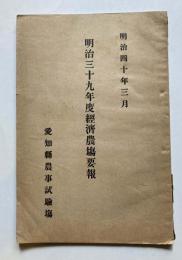 明治四十年三月
明治三十九年度經濟農塲要報
愛知縣農事試驗塲